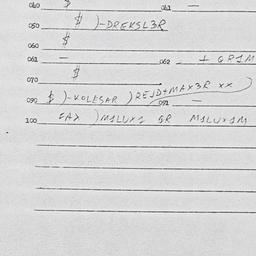 040 $ 041 —
050 $ )-DREKSL3R
060 $
061 — 062 + GR1M
070 $
090 $ )-KOLESAR )REJD+MAX3R xx 091 —
100 FAX )M1LUX1 GR M1LUX1M